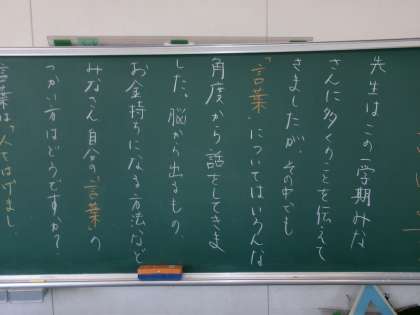 先生は、この一学期みな
さんに多くのことを伝えて
きましたが、その中でも
「言葉」についてはいろんな
角度から話をしてきま
した。脳から出るもの、
お金持ちになる方法など
みなさん自分の「言葉」の
つかい方はどうですか？
言葉は「人をはげまし、